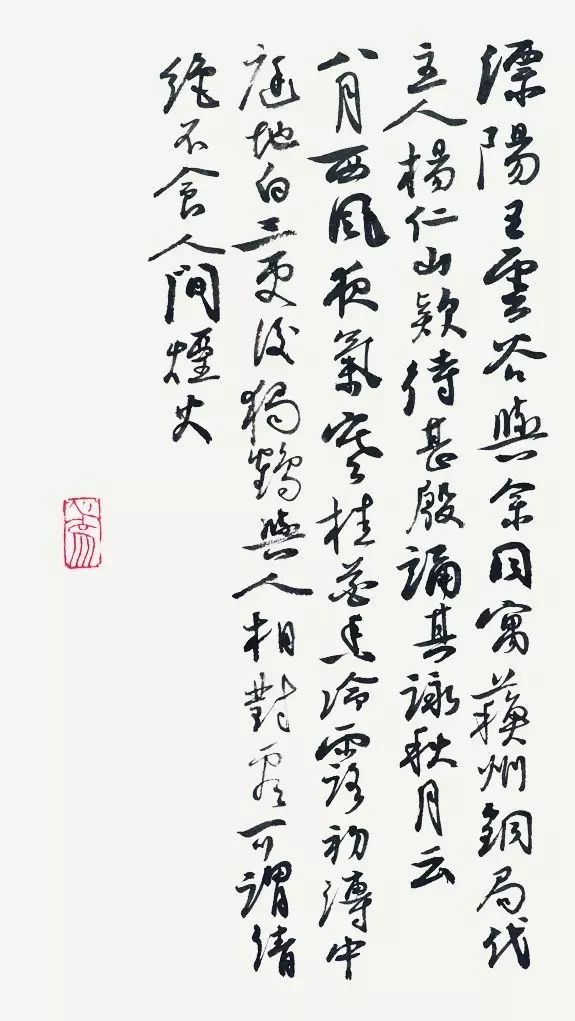 溧陽王雲谷與余同寓蘇州銅局代
主人楊仁山款待甚殷誦其詠秋月云
八月西風夜氣寒桂花香冷露初漙中
庭地白三更後獨鶴與人相對看可謂清
絕不食人間煙火